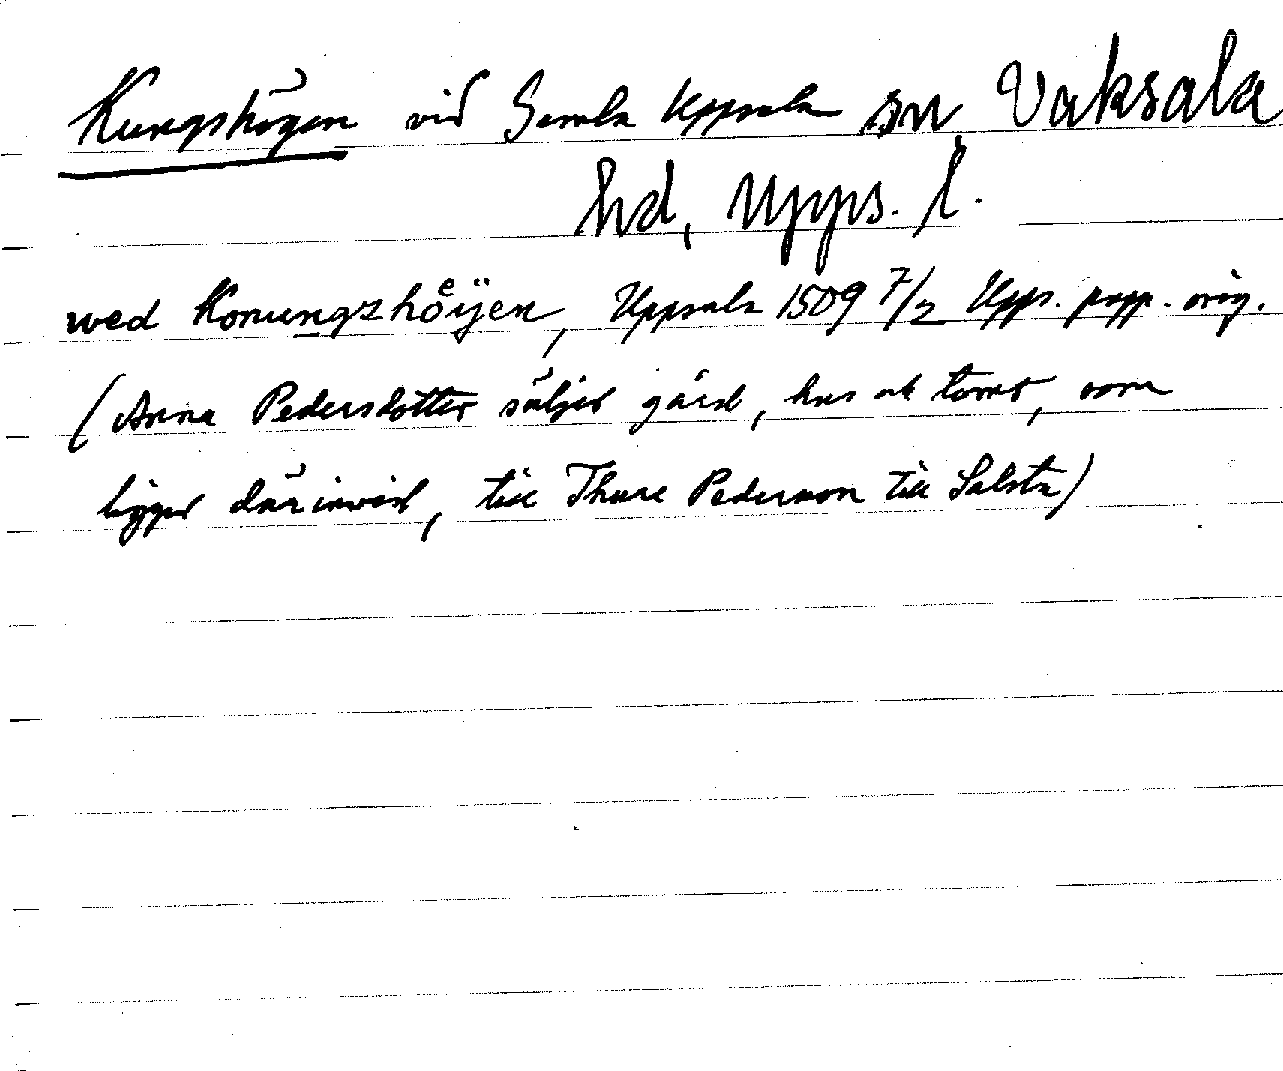 Kungshögen vid Gamla Uppsala sn, Vaksala
hd, Upps. l.
wed Konungzhöÿen, Uppsala 1509 7/2 Upps. papp. orig.
(Anna Pedersdotter säljer gård, hus ok tomt, som
ligger därinvid, till Thure Pederson till Salsta)